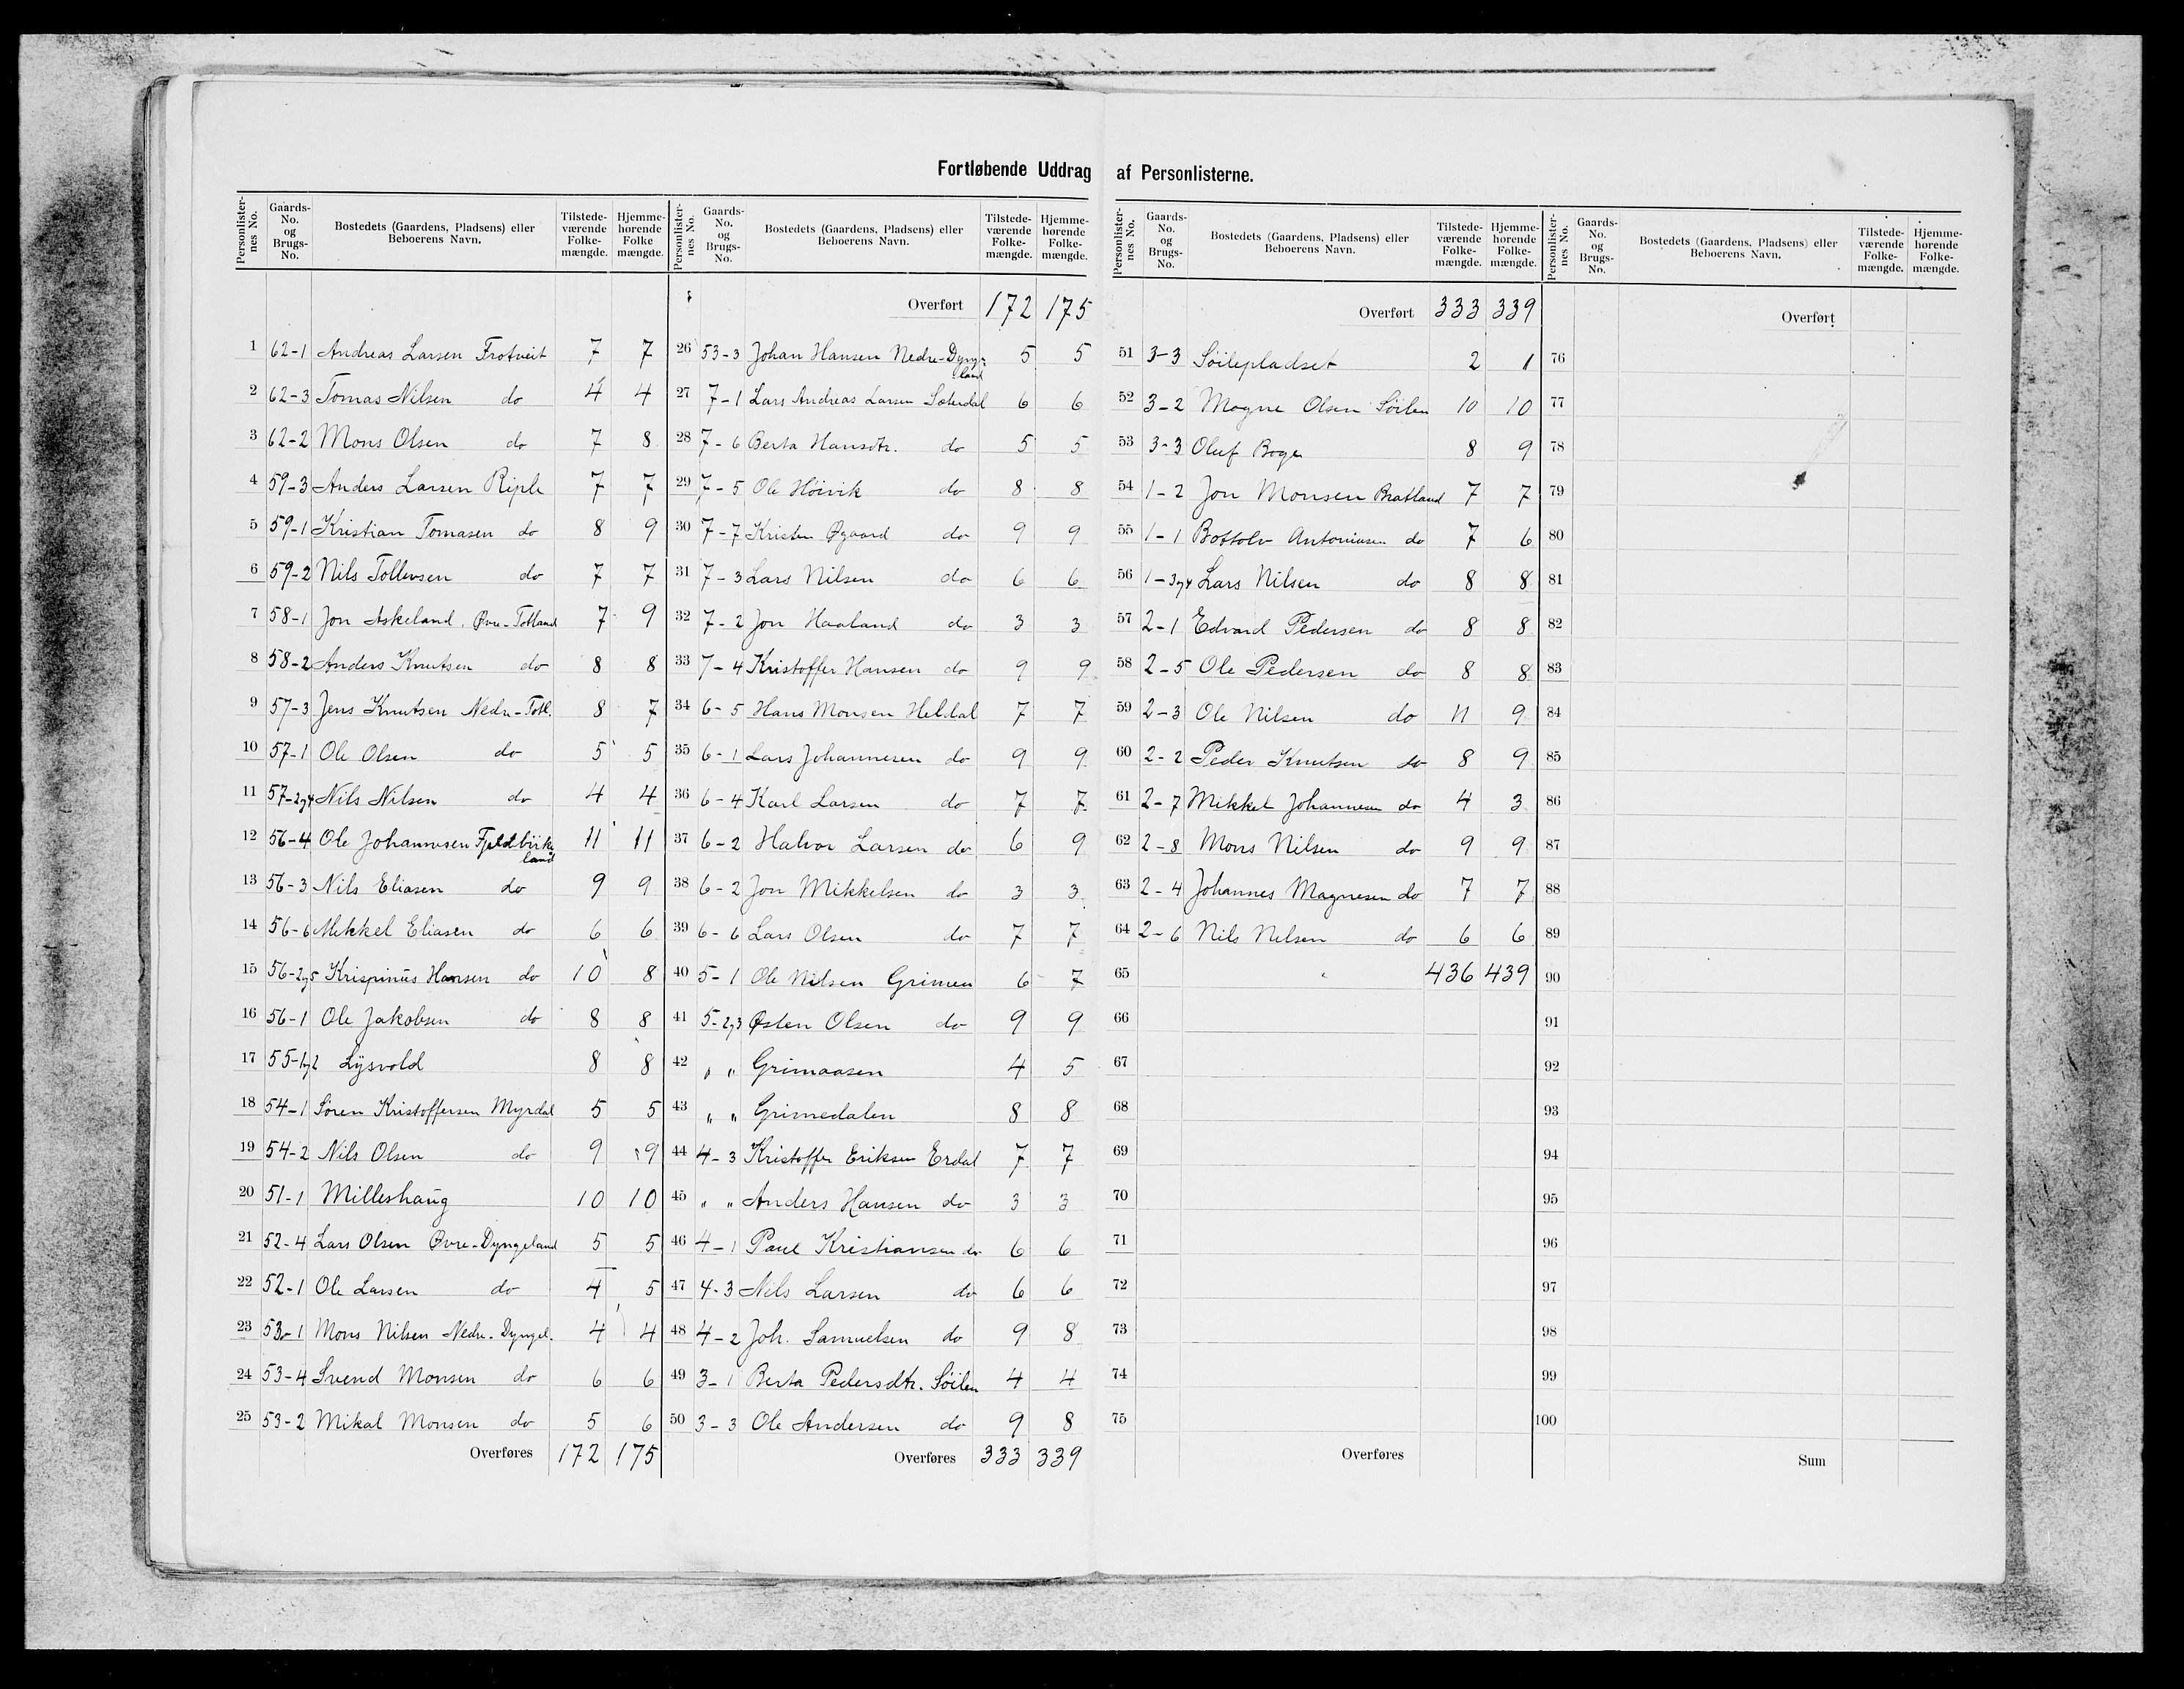 Fortløbende Uddrag af Personlisterne.
Personlister-nes No. Gaards-No. og Brugs-No. Bostedets (Gaardens, Pladsens) eller Beboerens Navn. Tilstede-værende Folke-mængde. Hjemme-hørende Folke mængde.
1 62-1 Andreas Larsen Frotveit 7 7
2 62-3 Tomas Nilsen do 4 4
3 62-2 Mons Olsen do 7 8
4 59-3 Anders Larsen Riple 7 7
5 59-1 Kristian Tomasen do 8 9
6 59-2 Nils Tollevsen do 7 7
7 58-1 Jon Askeland. Øvre-Totland 7 9
8 58-2 Anders Knutsen do 8 8
9 57-3 Jens Knutsen Nedre-Totl. 8 7
10 57-1 Ole Olsen do 5 5
11 57-2og4 Nils Nilsen do 4 4
12 56-4 Ole Johannesen Fjeldbirke land 11 11
13 56-3 Nils Eliasen do 9 9
14 56-6 Mikkel Eliasen do 6 6
15 56-2og5 Krispinus Hansen do 10 8
16 56-1 Ole Jakobsen do 8 8
17 55-1og2 Lysvold 8 8
18 54-1 Søren Kristoffersen Myrdal 5 5
19 54-2 Nils Olsen do 9 9
20 51-1 Milleshaug 10 10
21 52-4 Lars Olsen Øvre-Dyngeland 5 5
22 52-1 Ole Larsen do 4 5
23 53-1 Mons Nilsen Nedre-Dyngel. 4 4
24 53-4 Svend Monsen do 6 6
25 53-2 Mikal Monsen do 5 6
Overføres 172 175
Personlister-nes No. Gaards-No. og Brugs-No. Bostedets (Gaardens, Pladsens) eller Beboerens Navn. Tilstede-værende Folke-mængde. Hjemme-hørende Folke-mængde.
Overført 172 175
26 53-3 Johan Hansen Nedre-Dynge-land 5 5
27 7-1 Lars Andreas Larsen Sæterdal 6 6
28 7-6 Berta Hansdtr. do 5 5
29 7-5 Ole Høivik do 8 8
30 7-7 Kristen Øgaard do 9 9
31 7-3 Lars Nilsen do 6 6
32 7-2 Jon Haaland do 3 3
33 7-4 Kristoffer Hansen do 9 9
34 6-5 Hans Monsen Heldal 7 7
35 6-1 Lars Johannesen do 9 9
36 6-4 Karl Larsen do 7 7
37 6-2 Halvor Larsen do 6 9
38 6-2 Jon Mikkelsen do 3 3
39 6-6 Lars Olsen do 7 7
40 5-1 Ole Nilsen Grimen 6 7
41 5-2og3 Østen Olsen do 9 9
42 " " Grimaasen 4 5
43 " " Grimedalen 8 8
44 4-3 Kristoffer Eriksen Erdal 7 7
45 " " Anders Hansen do 3 3
46 4-1 Paul Kristiansen do 6 6
47 4-3 Nils Larsen do 6 6
48 4-2 Joh. Samuelsen do 9 8
49 3-1 Berta Pedersdtr. Søilen 4 4
50 3-3 Ole Andersen do 9 8
Overføres 333 339
Personlister-nes No. Gaards-No. og Brugs-No. Bostedets (Gaardens, Pladsens) eller Beboerens Navn. Tilstede-værende Folke-mængde. Hjemme-hørende Folke-mængde.
Overført 333 339
51 3-3 Søilepladset 2 1
52 3-2 Magne Olsen Søilen 10 10
53 3-3 Oluf Boge 8 9
54 1-2 Jon Monsen Bratland 7 7
55 1-1 Bottolv Antoniusen do 7 6
56 1-3og4 Lars Nilsen do 8 8
57 2-1 Edvard Pedersen do 8 8
58 2-5 Ole Pedersen do 8 8
59 2-3 Ole Nilsen do 11 9
60 2-2 Peder Knutsen do 8 9
61 2-7 Mikkel Johannesen do 4 3
62 2-8 Mons Nilsen do 9 9
63 2-4 Johannes Magnesen do 7 7
64 2-6 Nils Nilsen do 6 6
65 436 439
66
67
68
69
70
71
72
73
74
75
Overføres
Personlister-nes No. Gaards-No. og Brugs-No. Bostedets (Gaardens, Pladsens) eller Beboerens Navn. Tilstede-værende Folke-mængde. Hjemme-hørende Folke-mængde.
Overført
76
77
78
79
80
81
82
83
84
85
86
87
88
89
90
91
92
93
94
95
96
97
98
99
100
Sum